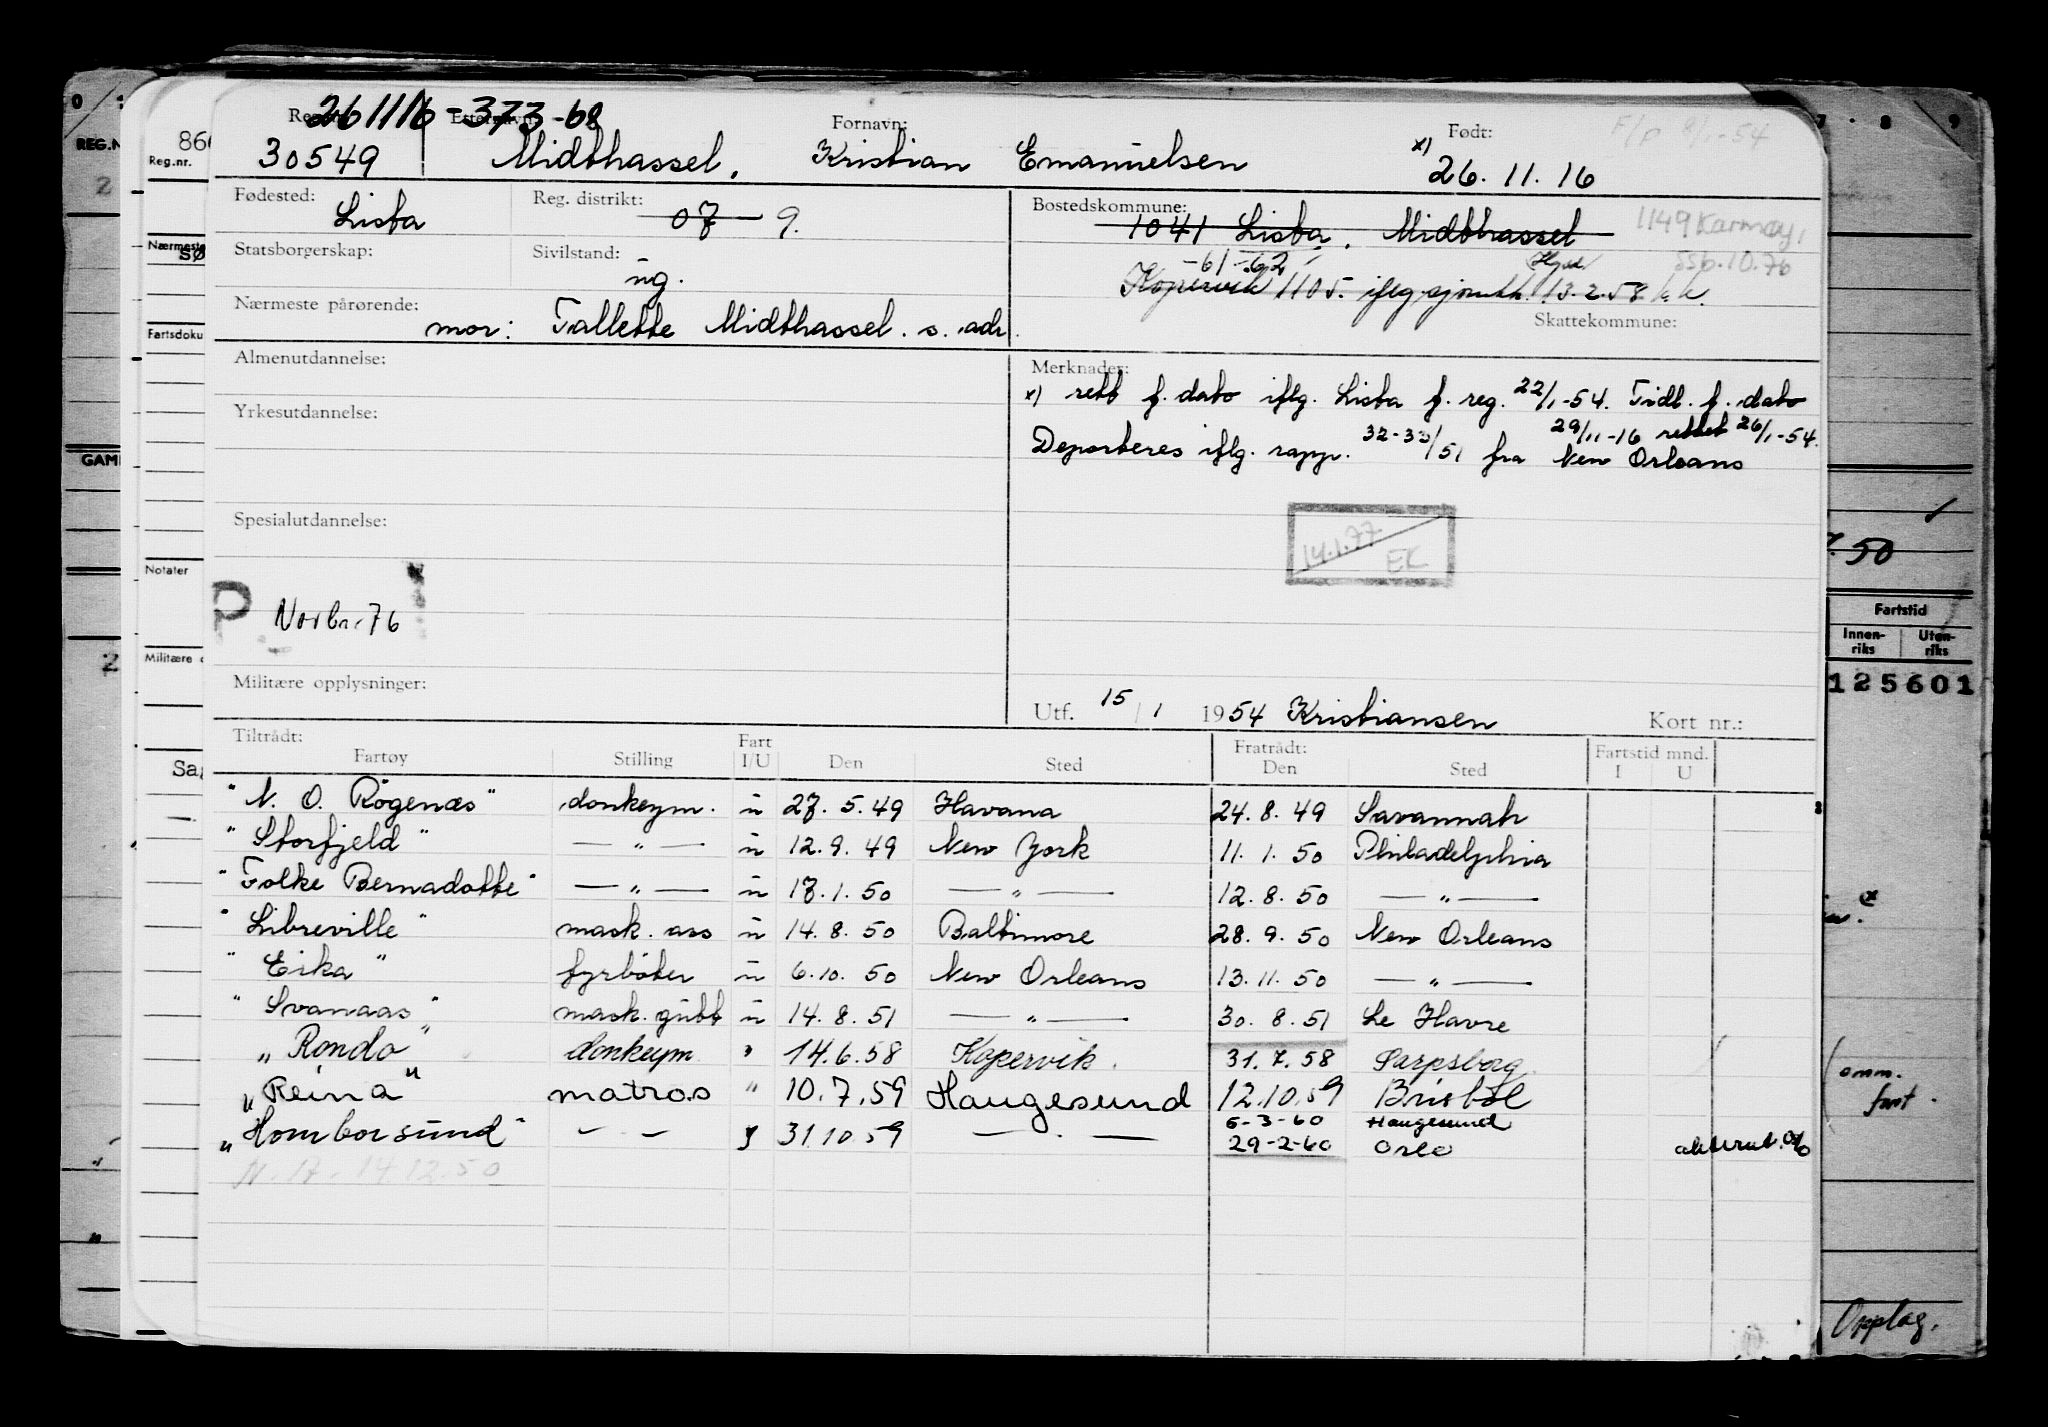 Etternavn: Fornavn: Født:
261116-373-68
30549 Midthassel, Kristian Emanuelsen x) 26.11.16
F/p 8/1-54
Fødested: Lista Reg. distrikt: 07 9. Bostedskommune: 1041 Lista, Midthassel 1149 Karmøy,
ssb.10.76
Statsborgerskap: Sivilstand: ug. -61-62
Kopervik 1105. iflg sjømth. 13.2.58
Nærmeste pårørende: mor: Tallette Midthassel. s. adr. Skattekommune:
Almenutdannelse: Merknader:
x) rett f. dato iflg. Lista f. reg. 22/1-54. Tidl. f. dato
29/11-16 rettet 26/1-54.
Yrkesutdannelse: Deporteres iflg. rapp. 32-33/51 fra New Orleans
Spesialutdannelse:
14.1.77 EK
P Norbr. 76
Militære opplysninger:
Utf. 15/1 1954 Kristiansen Kort nr.:
Tiltrådt: Fratrådt: Fartstid mnd.
Fartøy Stilling Fart I/U Den Sted Den Sted I U
"N. O. Røgenæs" donkeym. u 27.5.49 Havana 24.8.49 Savannah
"Storfjeld" — " — u 12.9.49 New York 11.1.50 Philadelphia
"Folke Bernadotte" — " — u 17.1.50 — " — 12.8.50 — " —
"Libreville" mask. ass u 14.8.50 Baltimore 28.9.50 New Orleans
"Erika" fyrbøter u 6.10.50 New Orleans 13.11.50 — " —
"Svanaas" mask. gutt u 14.8.51 — " — 30.8.51 Le Havre
"Rondo" donkeym " 14.6.58 Kopervik. 31.7.58 Sarpsborg
"Reina" matros " 10.7.59 Haugesund 12.10.59 Bristol
5-3-60 Haugesund
"Homborsund" — — 31.10.59 — . — 29-2-60 Oslo
N. 17. 14.12.50
REG.N
Reg.nr.
866
Nærmeste
SØ
Fartsdoku
GAM
Notater
Militære o
Sag
7 · 8 9
50
Fartstid
Innen-riks Uten-riks
125601
omm.
fart.
Opplag.